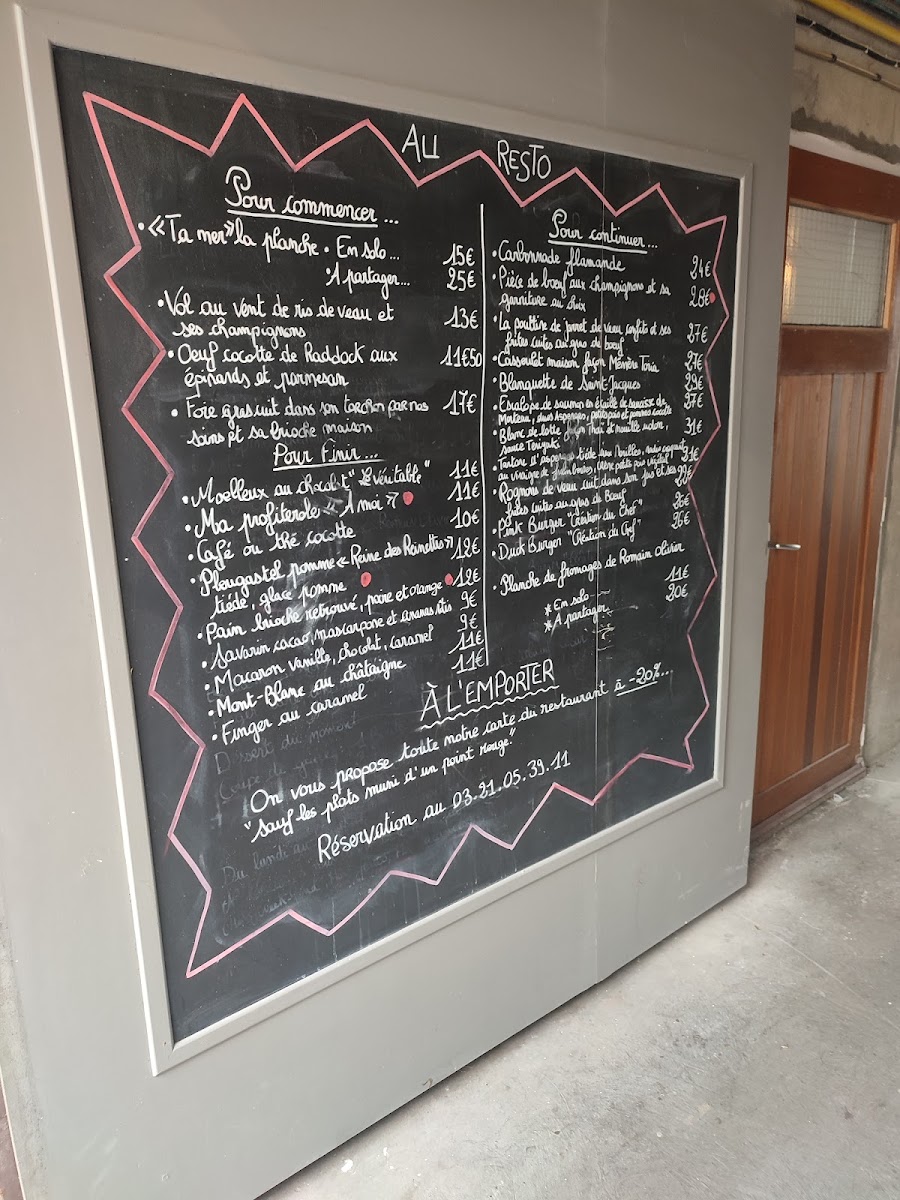 AU RESTO
Pour commencer...
• «Ta mer» la planche • En solo... 15€
'A partager... 25€
• Vol au vent de ris de veau et
ses champignons 13€
• Oeuf cocotte de Haddock aux
épinards et parmesan 11€50
• Foie gras cuit dans son torchon par nos
soins et sa brioche maison 17€
Pour Finir...
• Moelleux au chocolat "Le véritable" 11€
• Ma profiterole « A moi » 11€
• Café ou thé cocotte 10€
• Plougastel pomme « Reine des Reinettes »
tiède, glace pomme 12€
• Pain brioche retrouvé, poire et orange 12€
• Savarin cacao, mascarpone et ananas 9€
• Macaron vanille, chocolat, caramel 9€
• Mont-Blanc au châtaigne 11€
• Finger au caramel 11€
Dessert du moment
Pour continuer...
• Carbonnade flamande 24€
• Pièce de boeuf aux champignons et sa
garniture au choix 28€
• La pouttine de jarret de veau confits et ses
frites cuites au gras de boeuf 27€
• Cassoulet maison façon Mémère Toria 27€
• Blanquette de Saint Jacques 29€
• Escalope de saumon en écaille de saucisse de
Morteau, duos asperges, petits pois et pommes cocotte 27€
• Blanc de lotte façon Thaï et nouille udon,
sauce Teriyaki 31€
• Tartare d'asperges tiède aux Morilles,
au vinaigre de framboises, crème petits pois végétal 31€
• Rognons de veau cuit dans son jus et ses
frites cuites au gras de Boeuf 29€
• Pink Burger "Création du Chef" 26€
• Duck Burger "Création du Chef" 26€
• Planche de fromages de Romain Olivier
* En solo 11€
* A partager 20€
À L'EMPORTER
On vous propose toute notre carte du restaurant à -20%...
"Sauf les plats muni d'un point rouge."
Réservation au 03.21.05.39.11